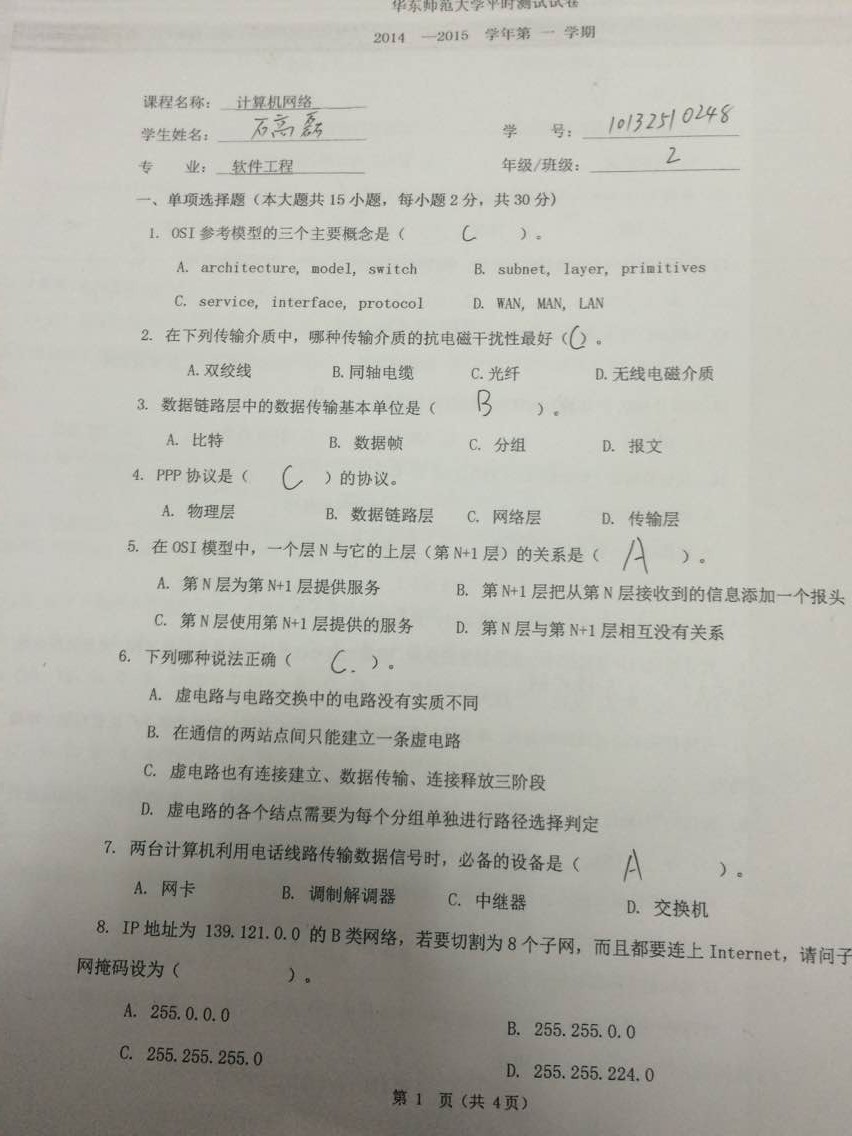 华东师范大学平时测试试卷
2014 —2015 学年第 一 学期
课程名称: 计算机网络
学生姓名: 石高磊 学 号: 10132510248
专 业: 软件工程 年级/班级: 2
一、单项选择题(本大题共 15 小题,每小题 2 分,共 30 分)
1. OSI 参考模型的三个主要概念是( C )。
A. architecture, model, switch B. subnet, layer, primitives
C. service, interface, protocol D. WAN, MAN, LAN
2. 在下列传输介质中,哪种传输介质的抗电磁干扰性最好(C)。
A.双绞线 B.同轴电缆 C.光纤 D.无线电磁介质
3. 数据链路层中的数据传输基本单位是( B )。
A. 比特 B. 数据帧 C. 分组 D. 报文
4. PPP 协议是( C )的协议。
A. 物理层 B. 数据链路层 C. 网络层 D. 传输层
5. 在 OSI 模型中,一个层 N 与它的上层(第 N+1 层)的关系是( A )。
A. 第 N 层为第 N+1 层提供服务 B. 第 N+1 层把从第 N 层接收到的信息添加一个报头
C. 第 N 层使用第 N+1 层提供的服务 D. 第 N 层与第 N+1 层相互没有关系
6. 下列哪种说法正确( C. )。
A. 虚电路与电路交换中的电路没有实质不同
B. 在通信的两站点间只能建立一条虚电路
C. 虚电路也有连接建立、数据传输、连接释放三阶段
D. 虚电路的各个结点需要为每个分组单独进行路径选择判定
7. 两台计算机利用电话线路传输数据信号时,必备的设备是( A )。
A. 网卡 B. 调制解调器 C. 中继器 D. 交换机
8. IP 地址为 139.121.0.0 的 B 类网络,若要切割为 8 个子网,而且都要连上 Internet,请问子
网掩码设为( )。
A. 255.0.0.0 B. 255.255.0.0
C. 255.255.255.0 D. 255.255.224.0
第 1 页(共 4页)